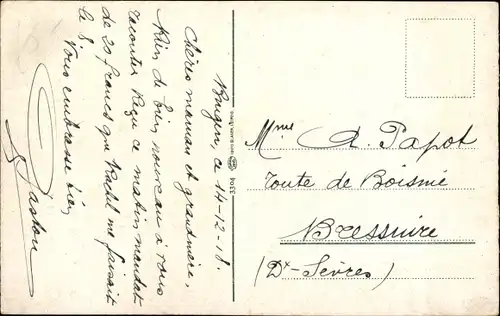 ce 14-12-18.
Chères maman et grandmère,
Rien de bien nouveau à vous
raconter. Reçu ce matin mandat
de 20 francs que Rachel me faisait
le 8.
Vous embrasse bien
Gaston
33504
Mme A. Papot
Route de Boismé
Bressuire
(Dx-Sèvres)